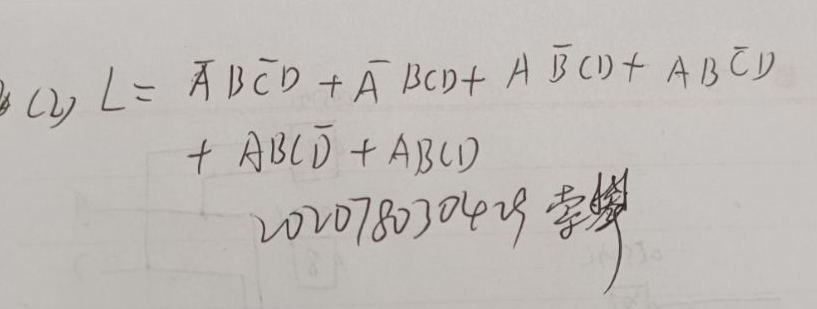 (2) L = A̅BC̅D + A̅BCD + AB̅CD + ABC̅D
+ ABCD̅ + ABCD
202078030429 李